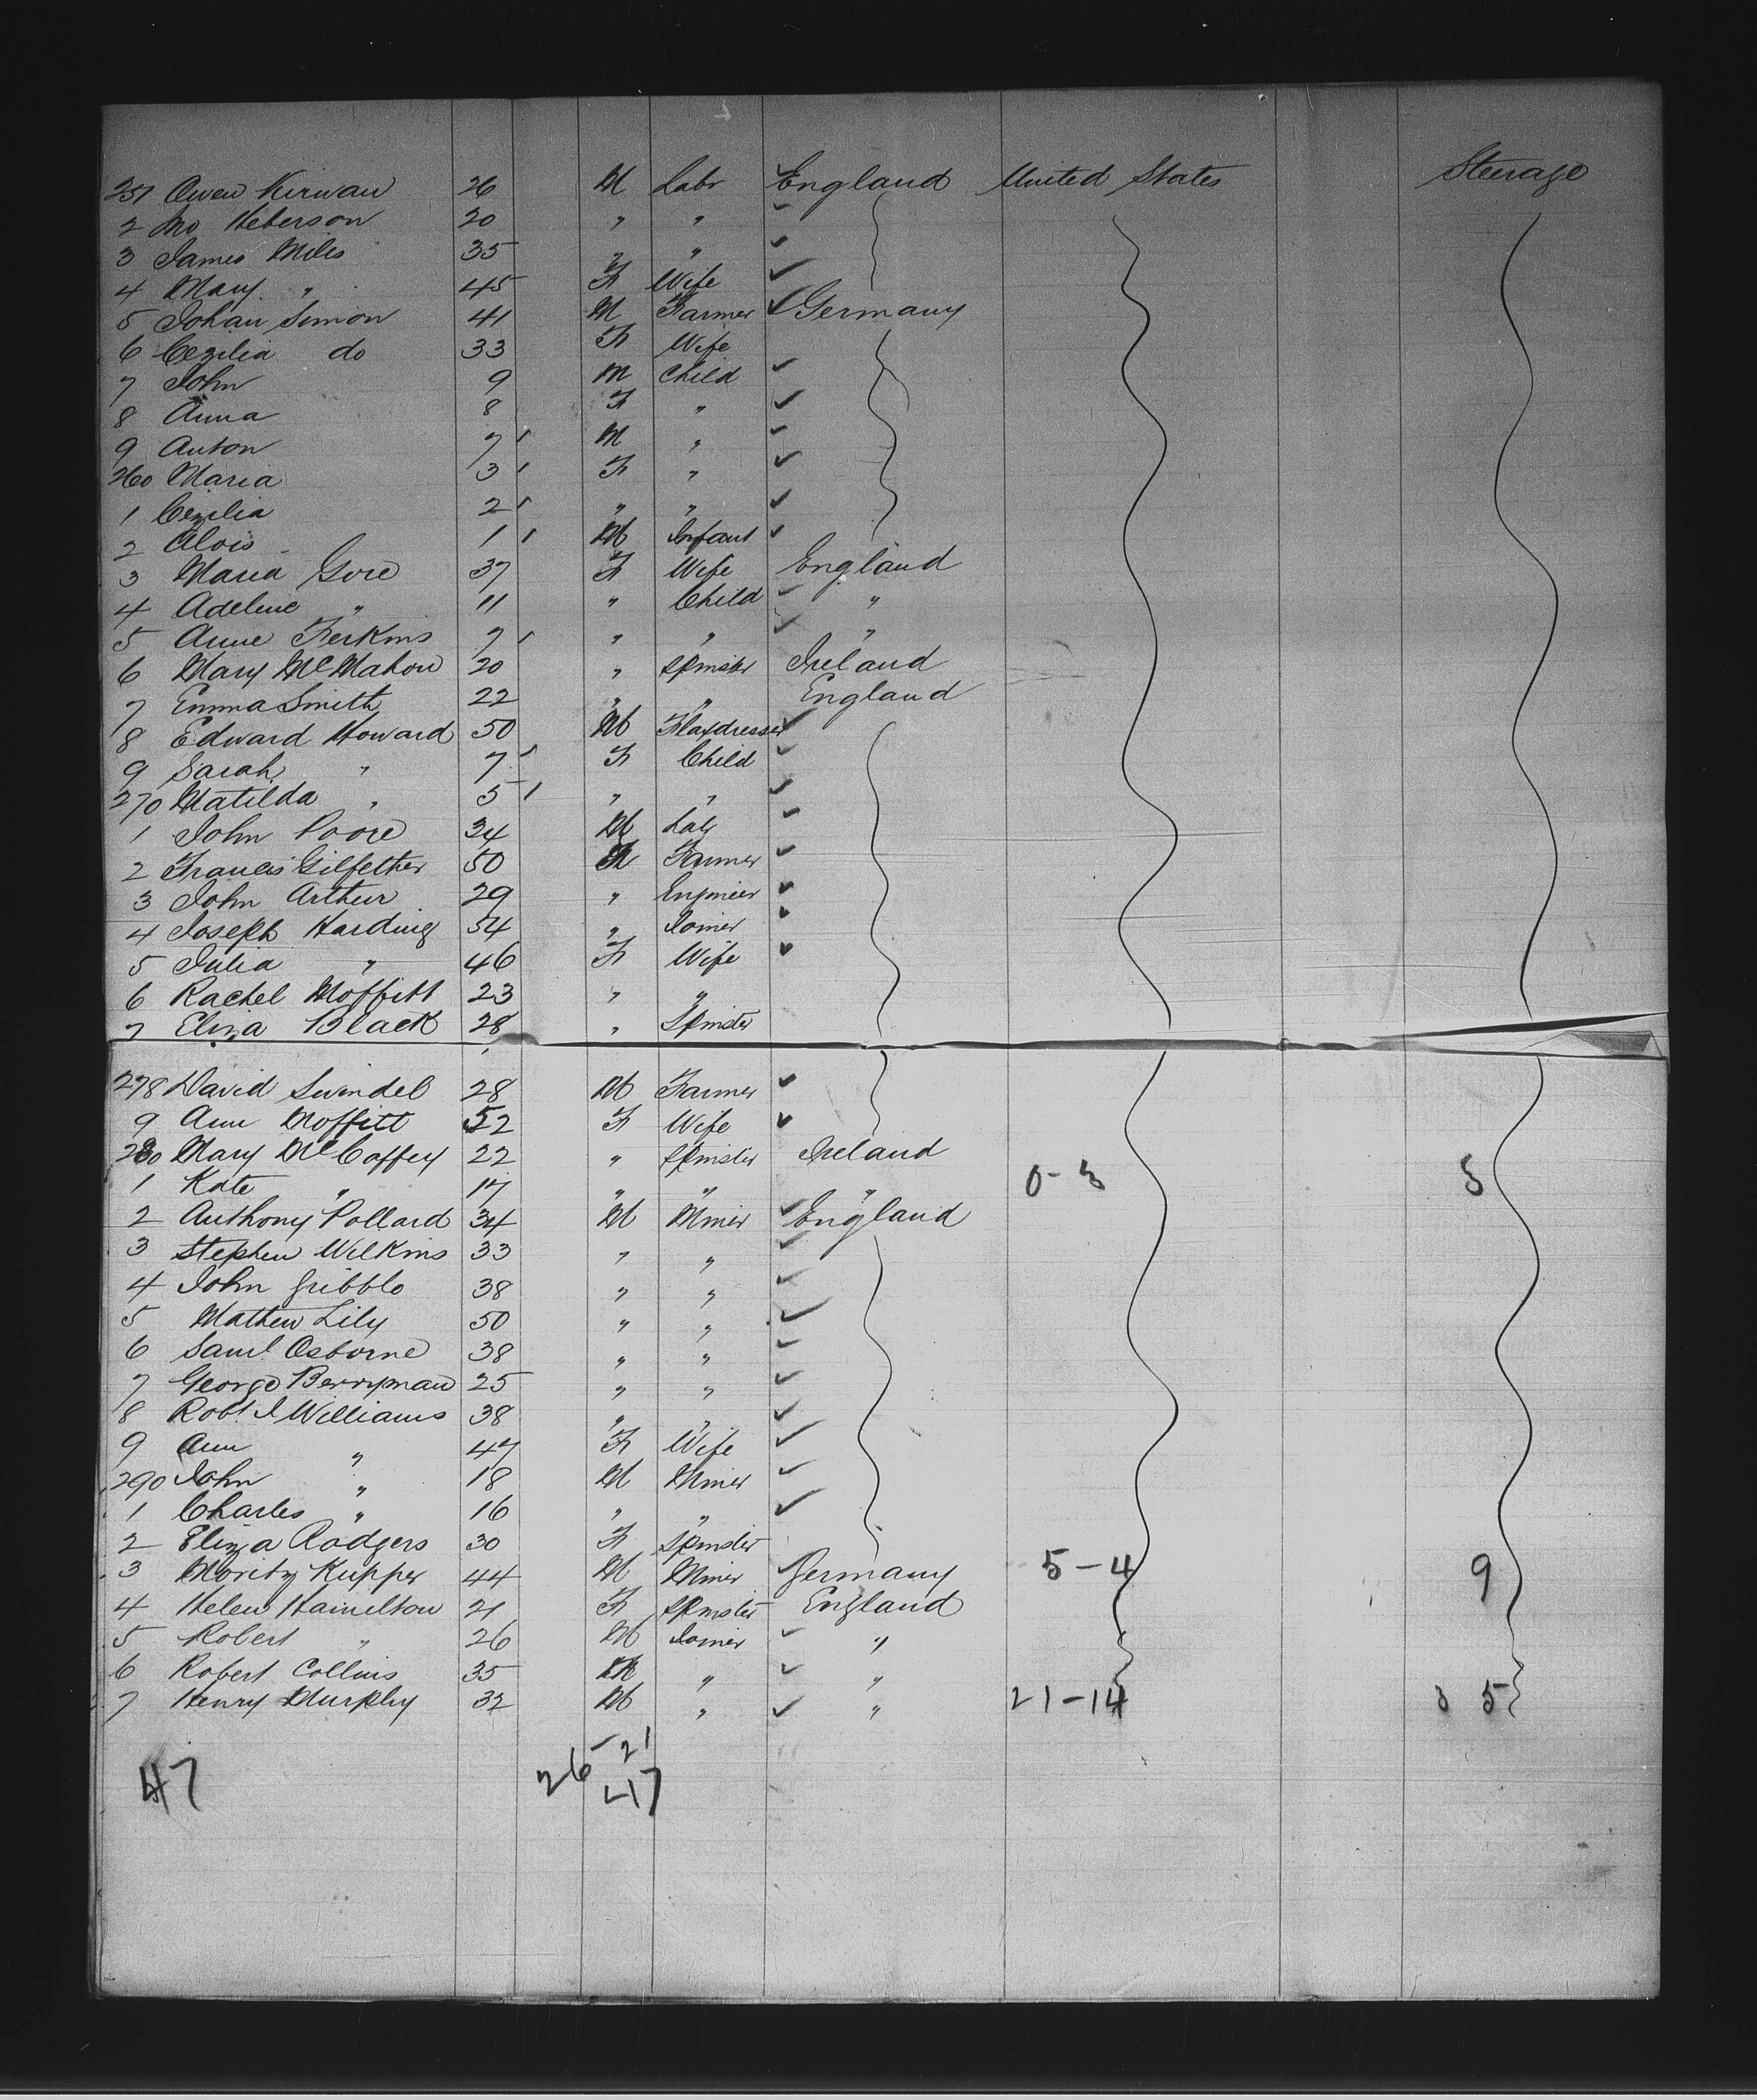 251 Owen Kirwan 26 M Labr England United States Steerage
2 Jno Heberson 20 " "
3 James Miles 35 " "
4 Mary " 45 F Wife
5 Johan Simon 41 M Farmer Germany
6 Cezilia do 33 F Wife
7 John 9 M Child
8 Anna 8 F "
9 Anton 7 M "
260 Maria 3 F "
1 Cezilia 2 " "
2 Alois 1 M Infant
3 Maria Gore 37 F Wife England
4 Adeline " 11 " Child "
5 Anne Ferkins 7 " " "
6 Mary McMahon 20 " Spinster Ireland
7 Emma Smith 22 " " England
8 Edward Howard 50 M Flaxdresser
9 Sarah " 7 F Child
270 Matilda " 5 " "
1 John Poore 34 M Labr
2 Francis Gilfether 50 Farmer
3 John Arthur 29 " Engineer
4 Joseph Harding 54 " Joiner
5 Julia " 46 F Wife
6 Rachel Moffitt 23 " "
7 Eliza Black 28 " Spinster
278 David Swindel 28 M Farmer
9 Ann Moffitt 52 F Wife
280 Mary McCaffery 22 " Spinster Ireland
1 Kate " 17 " " " 0-3 3
2 Anthony Pollard 34 M Miner England
3 Stephen Wilkins 33 " "
4 John Gribble 38 " "
5 Mathew Lily 50 " "
6 Saml Osborne 38 " "
7 George Berryman 25 " "
8 Robt J Williams 38 " "
9 Ann " 47 F Wife
290 John " 18 M Miner
1 Charles " 16 " "
2 Eliza Rodgers 30 F Spinster
3 Moritz Kupper 44 M Miner Germany 5-4 9
4 Helen Hamilton 21 F Spinster England
5 Robert " 26 M Joiner "
6 Robert Collins 35 M " "
7 Henry Murphy 32 M " " 21-14 35
47 26-21
47